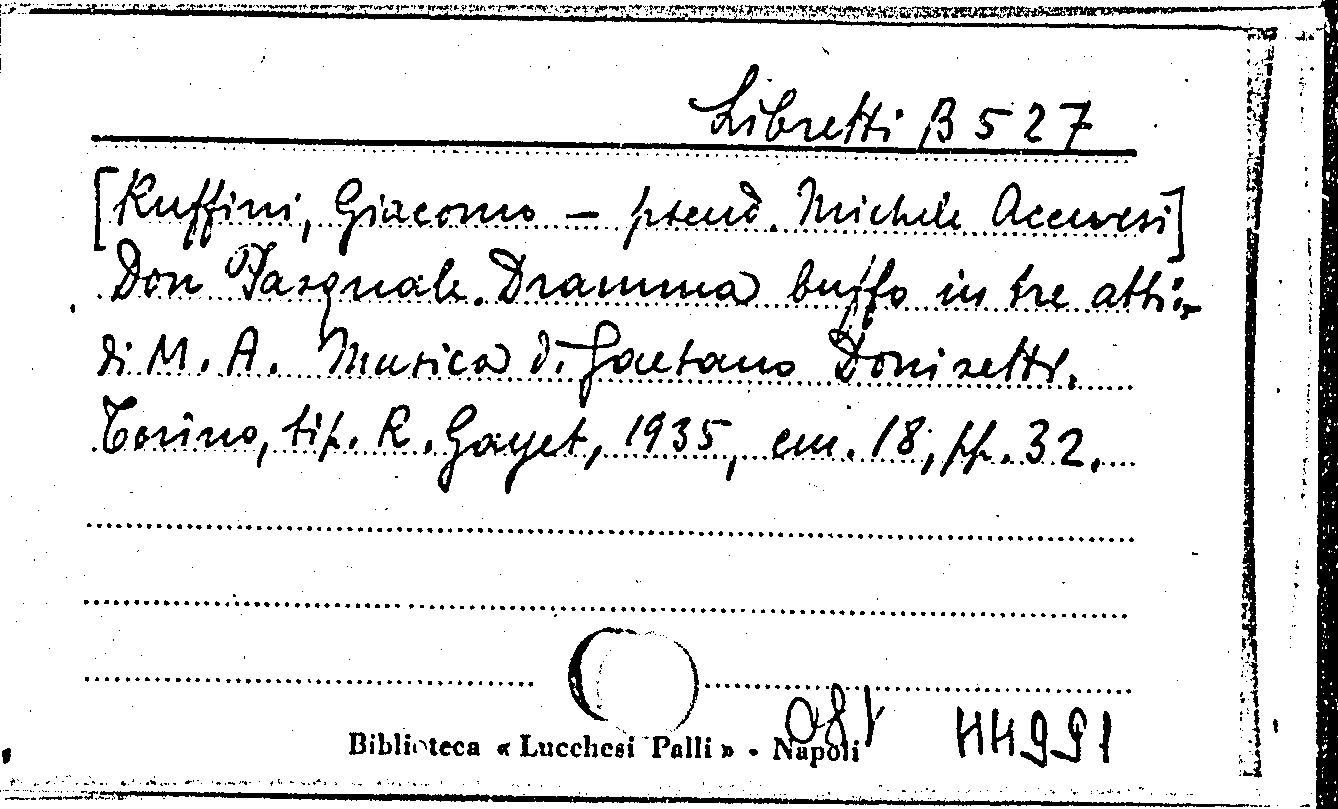 Libretti B 527
[Ruffini, Giacomo – pseud. Michele Accursi]
Don Pasquale. Dramma buffo in tre atti
di M. A. Musica di Gaetano Donizetti.
Torino, tip. R. Gayet, 1935, cm. 18, pp. 32.
Biblioteca « Lucchesi Palli » - Napoli